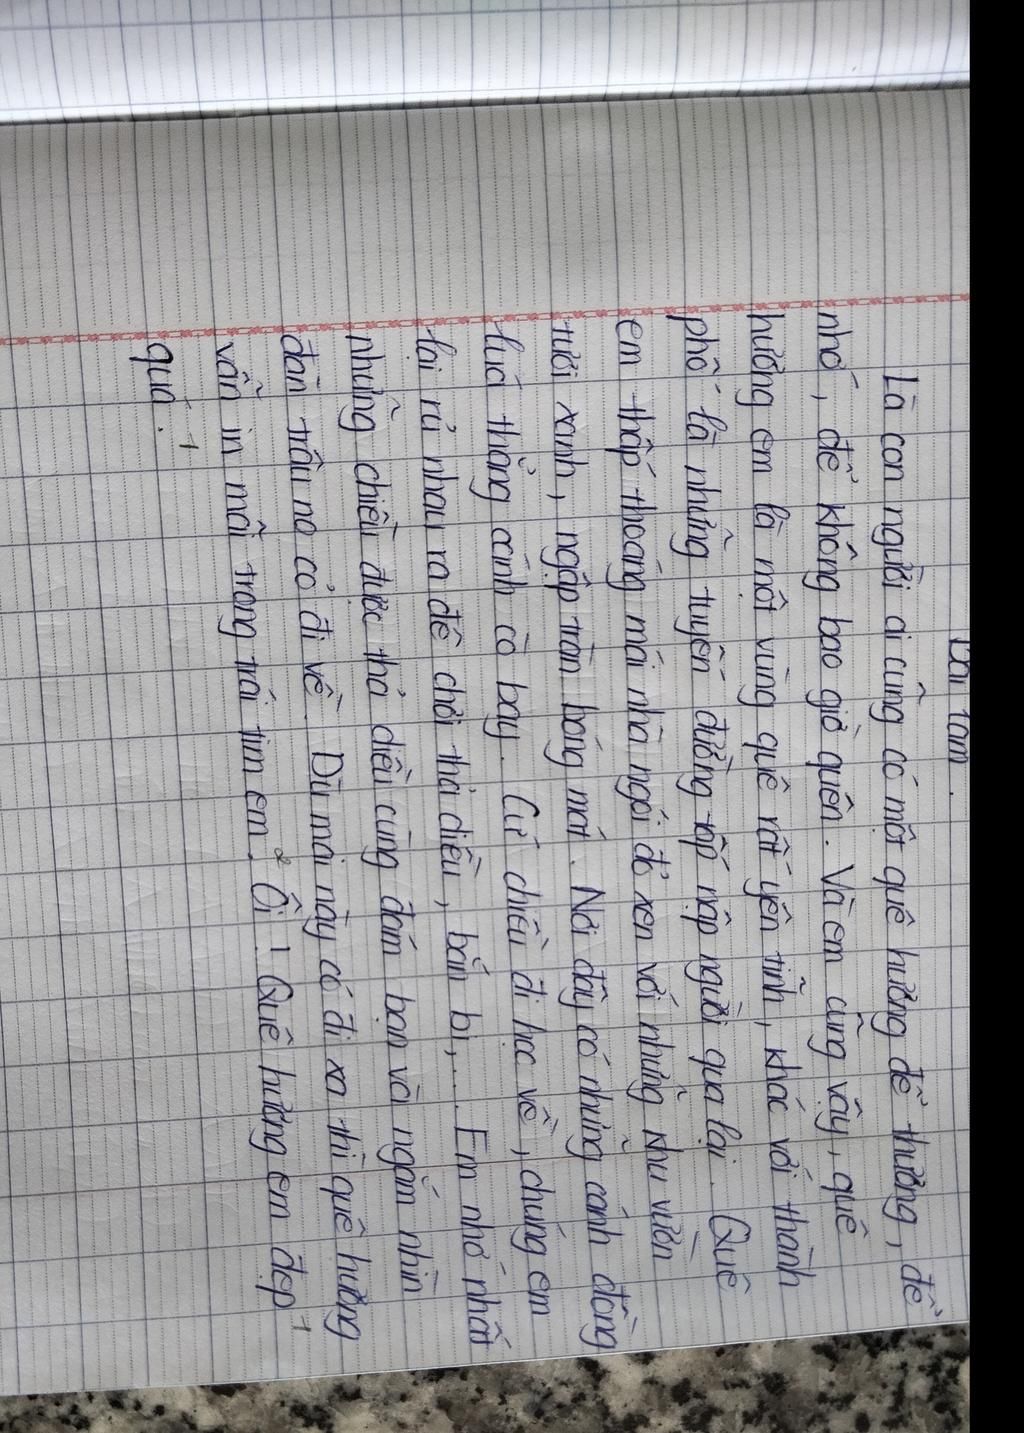 Bài làm.
Là con người ai cũng có một quê hương để thương, để
nhớ, để không bao giờ quên. Và em cũng vậy, quê
hương em là một vùng quê rất yên tĩnh, khác với thành
phố là những tuyến đường tấp nập người qua lại. Quê
em thấp thoáng mái nhà ngói đỏ xen với những khu vườn
tươi xanh, ngập tràn bóng mát. Nơi đây có những cánh đồng
lúa thẳng cánh cò bay. Cứ chiều đi học về, chúng em
lại rủ nhau ra đê chơi thả diều, bắn bi,... Em nhớ nhất
những chiều được thả diều cùng đám bạn và ngắm nhìn
đàn trâu no cỏ đi về. Dù mai này có đi xa thì quê hương
vẫn in mãi trong trái tim em. Ôi! Quê hương em đẹp
quá.